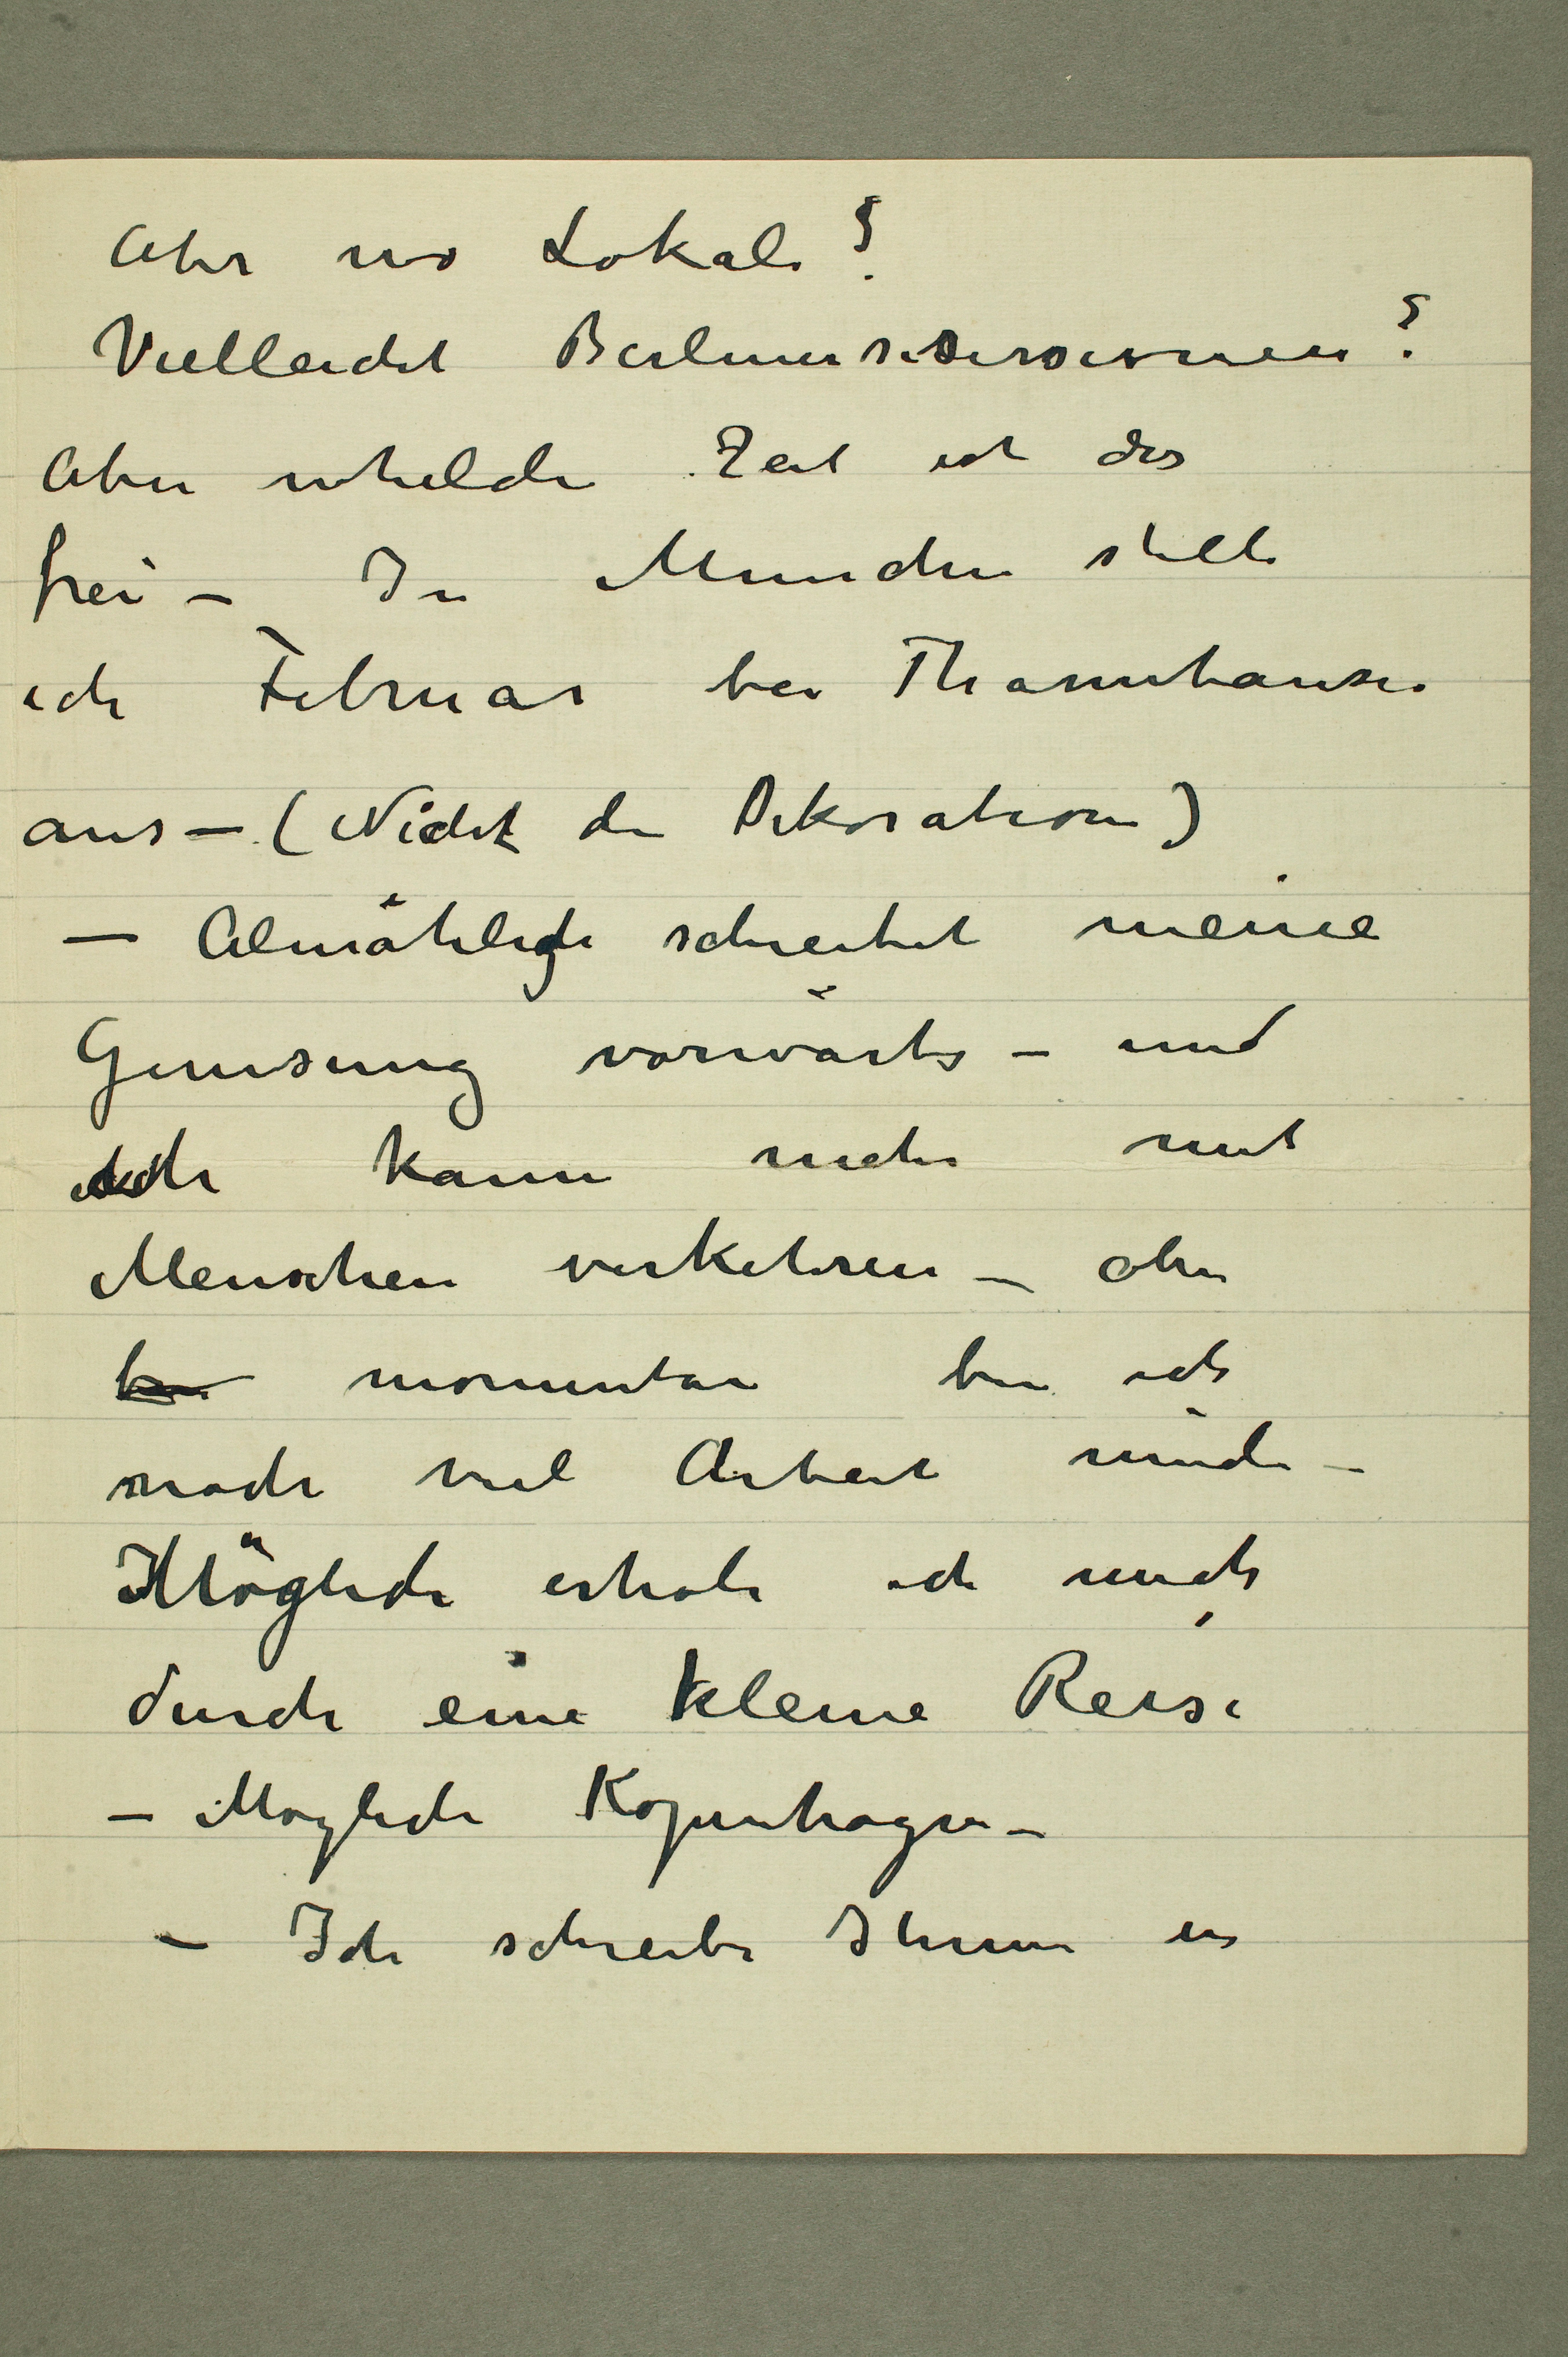 Aber wo Lokale?
Vielleicht Berlinersesersionen?
Aber whelche Zeit ist das
frei – In Munchen stelle
ich Februar bei Thannhauser
aus – (Nicht die Dekoration)
– Almählich schreitet meine
Genesung vorwärts – und
ich kann mehr mit
Menschen verkehren – aber
momentan bin ich
nach viel Arbeit müde –
Möglich erhole ich mich
durch eine kleine Reise
– Moglich Kopenhagen –
– Ich schreibe Ihnen es